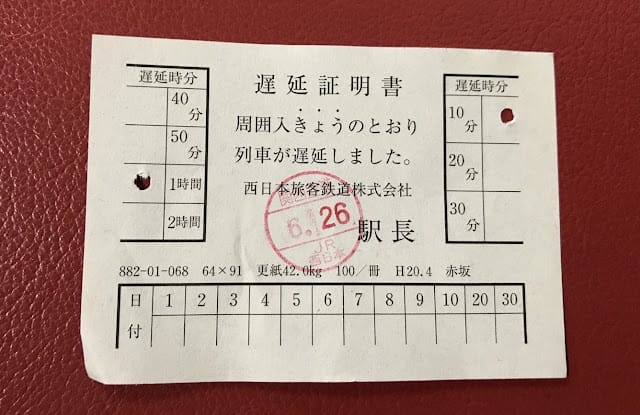 遅延証明書
周囲入きょうのとおり
列車が遅延しました。
西日本旅客鉄道株式会社
駅長
遅延時分
40分
50分
1時間
2時間
遅延時分
10分
20分
30分
6.
26
JR
西日本
882-01-068 64×91 更紙42.0kg 100/冊 H20.4 赤坂
日付 1 2 3 4 5 6 7 8 9 10 20 30